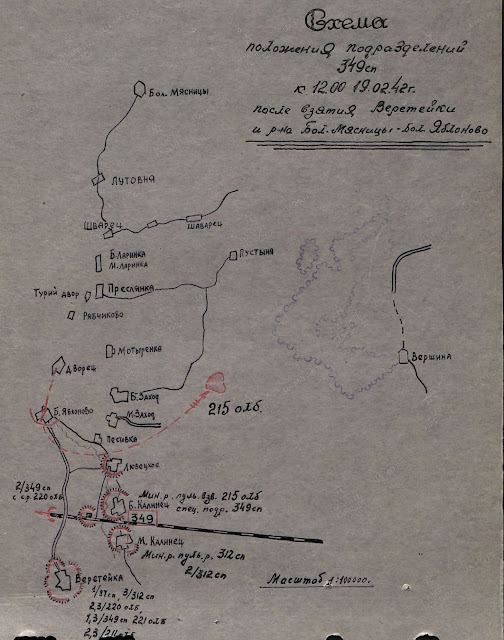 Схема
положения подразделений
349сп
к 12.00 19.02.42г.
после взятия Веретейки
и р-на Бол. Мясницы-Бол. Яблоново
Бол. Мясницы
Лутовня
Шварец
Шаварец
Б. Ларинка
М. Ларинка
Пустыня
Турий двор
Преслянка
Рябчиково
Мотыренка
Вершина
Дворец
Б. Заход
М. Заход
215 олб.
Б. Яблоново
Песивка
Любецкое
2/349сп
с с.р. 220 олб
Мин.р. пульвзв. 215 олб
спец. подр. 349сп
Б. Калинец
349
М. Калинец
Мин.р. пульр. 312сп
2/312сп
Веретейка
1/37сп, 3/312сп
2,3/220 олб,
1,3/349сп 221 олб
2,3/211 олб
Масштаб 1:100000.